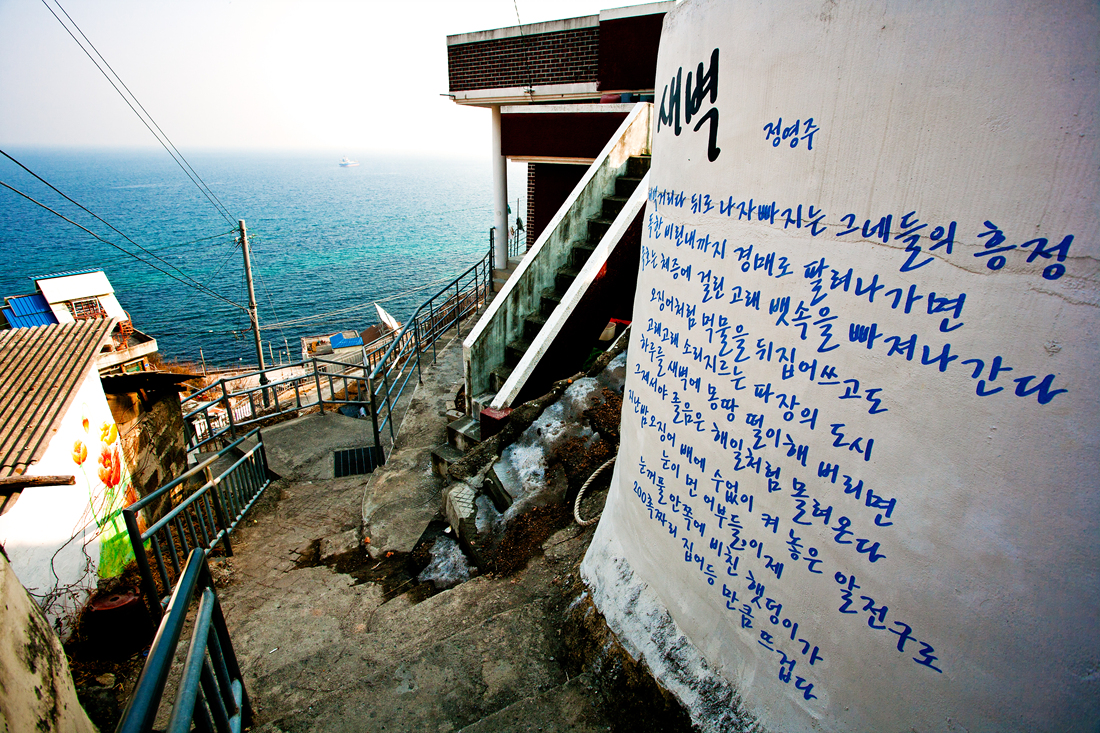 새벽
정영주
뒤로 나자빠지는 그네들의 흥정
독한 비린내까지 경매로 팔려나가면
체증에 걸린 고래 뱃속을 빠져나간다
오징어처럼 먹물을 뒤집어쓰고도
고래고래 소리지르는 파장의 도시
하루를 새벽에 몽땅 떨이해 버리면
그제서야 졸음은 해일처럼 몰려온다
지난밤 오징어 배에 수없이 켜 놓은 알전구로
눈이 먼 어부들, 이제
눈꺼풀 안쪽에 비친 햇덩이가
200촉짜리 집어등 만큼 뜨겁다